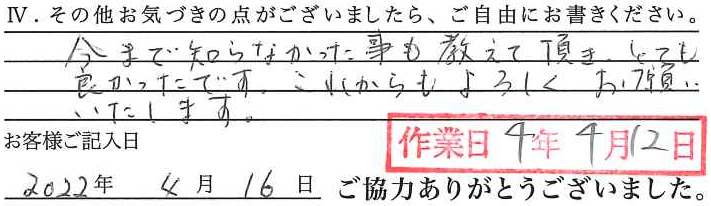 Ⅳ．その他お気づきの点がございましたら、ご自由にお書きください。
今まで知らなかった事も教えて頂き、とても
良かったです。これからもよろしくお願い
いたします。
お客様ご記入日
作業日 4年 4月12日
2022年 4月 16日 ご協力ありがとうございました。